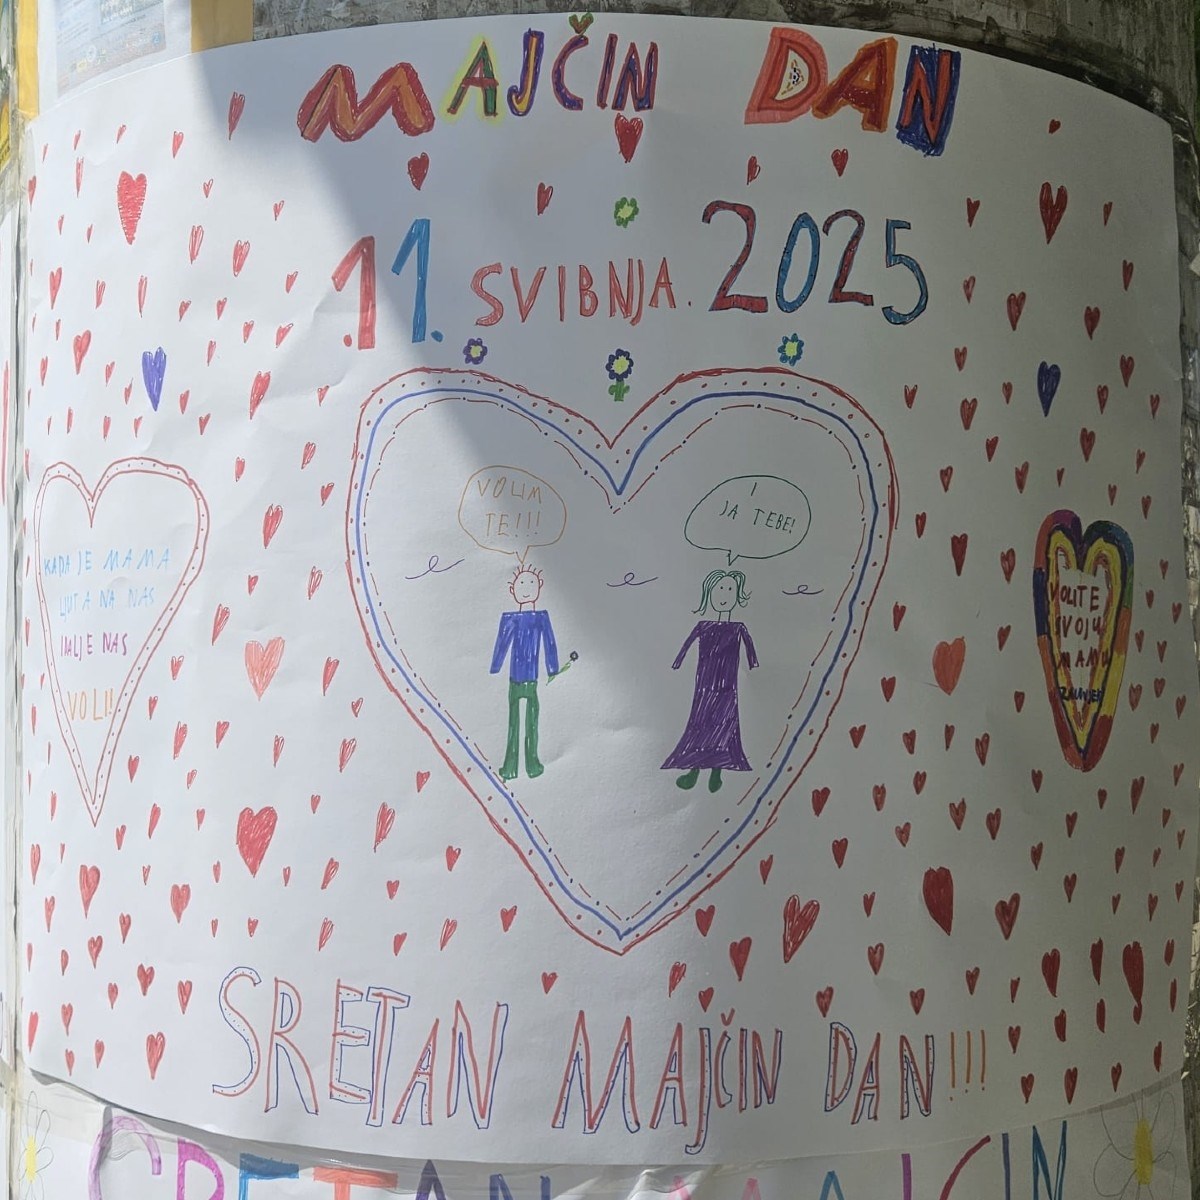 MAJČIN DAN
11. SVIBNJA. 2025
VOLIM
TE!!!
I
JA TEBE!
KADA JE MAMA
LJUTA NA NAS
I NALJE NAS
VOLI!
VOLITE
SVOJU
MAMU
ZAUVIJEK
SRETAN MAJČIN DAN!!!
SRETAN MAJČIN